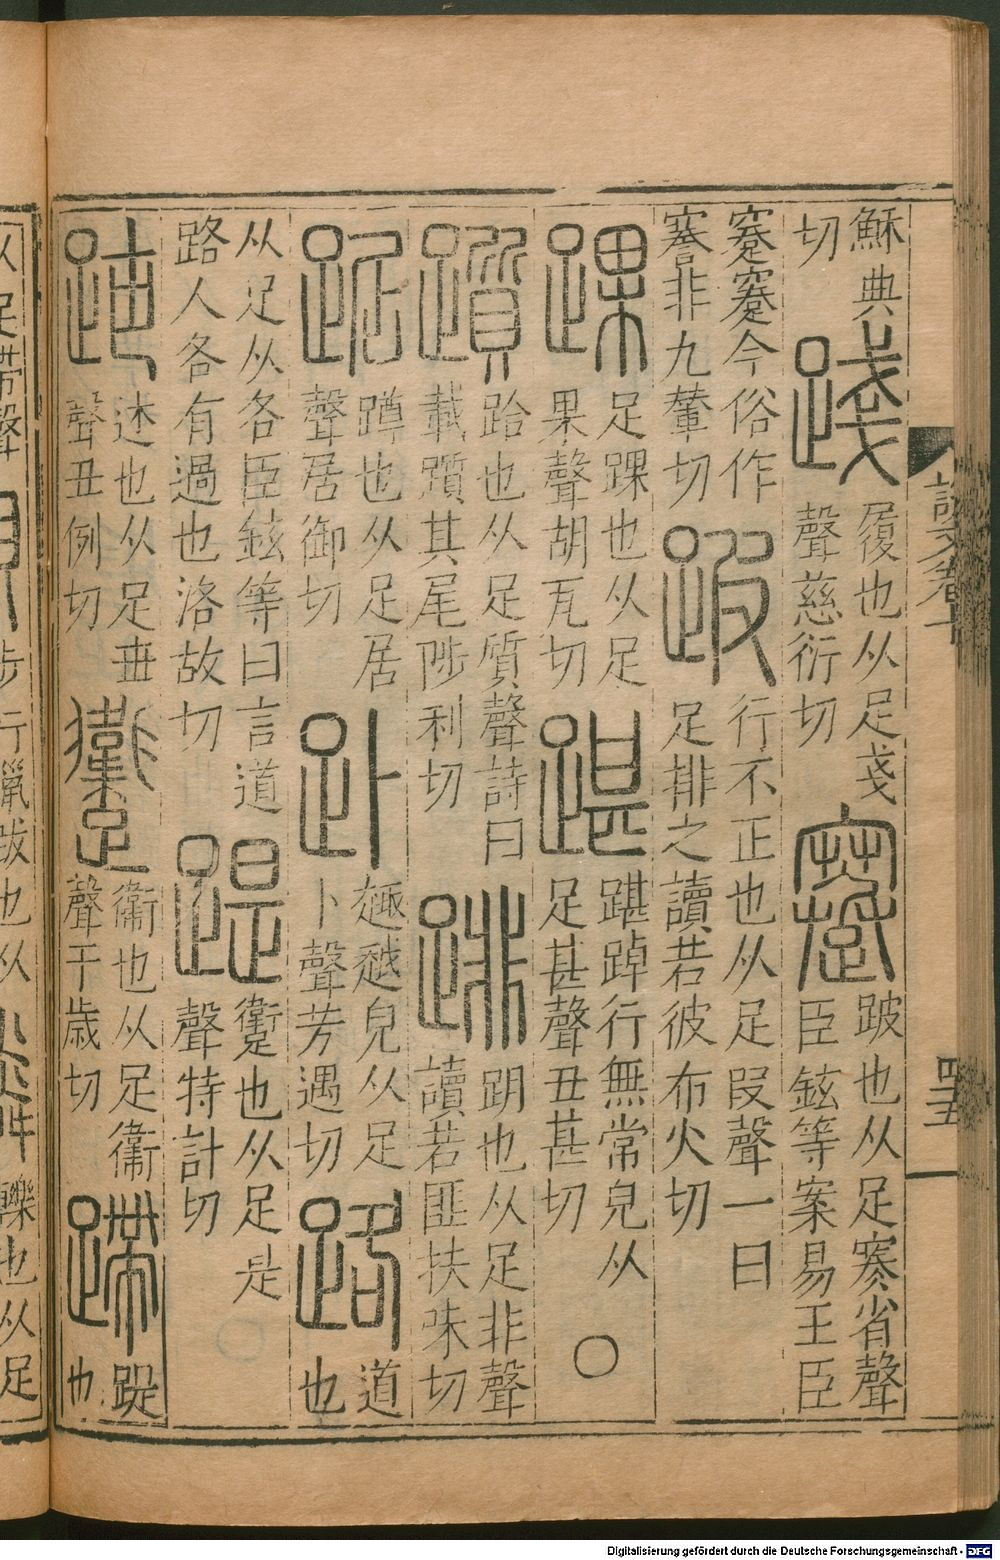 說文卷 四五
穌典切 踐 履也从足戔聲慈衍切 蹇 跛也从足寒省聲臣鉉等案易王臣
蹇蹇今俗作謇非九輦切 跛 行不正也从足叚聲一曰足排之讀若彼布火切
踝 足踝也从足果聲胡瓦切 踸 踸踔行無常皃从足甚聲丑甚切 ○
躓 跲也从足質聲詩曰載躓其尾陟利切 䠊 跀也从足非聲讀若匪扶味切
踞 蹲也从足居聲居御切 䟔 趣越皃从足卜聲芳遇切 路 道也
从足从各臣鉉等曰言道路人各有過也洛故切 踶 躗也从足是聲特計切
跇 述也从足世聲丑例切 躗 衞也从足衞聲于歲切 蹛 踶也
从足帶聲 步行獵跋也从 轢也从足
Digitalisierung gefördert durch die Deutsche Forschungsgemeinschaft - DFG